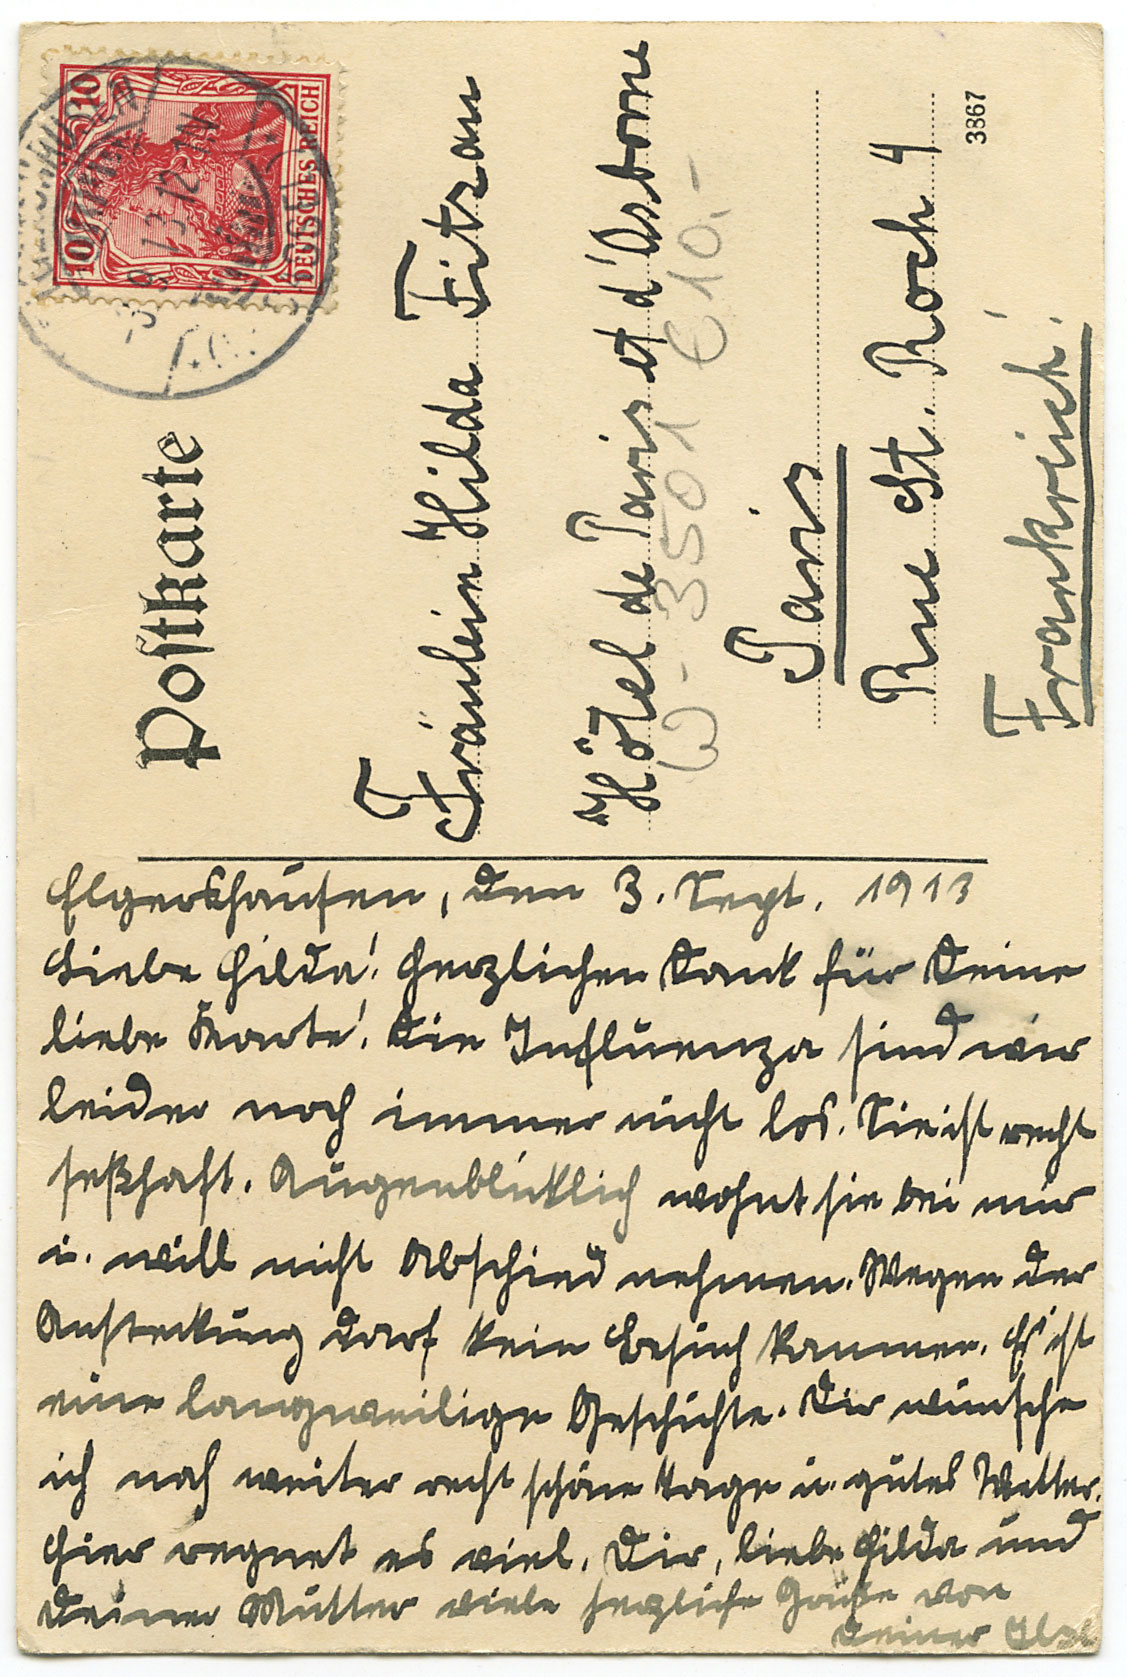 Postkarte
10 10
DEUTSCHES REICH
3.9.13.12-1N
Fräulein Hilda Fitzau
Hôtel de Paris et d'Osborne
W-3501 € 10.-
Paris
Rue St. Roch 4
Frankreich.
3867
Elgershausen, den 3. Sept. 1913
Liebe Hilda! Herzlichen Dank für Deine
liebe Karte! Die Influenza sind wir
leider noch immer nicht los. Sie ist recht
seßhaft. Augenblicklich wohnt sie bei mir
u. will nicht Abschied nehmen. Wegen der
Ansteckung darf kein Besuch kommen. Es ist
eine langweilige Geschichte. Dir wünsche
ich noch weiter recht schöne Tage u. gutes Wetter.
Hier regnet es viel. Dir, liebe Hilda und
Deiner Mutter viele herzliche Grüße von
Deiner Ilse